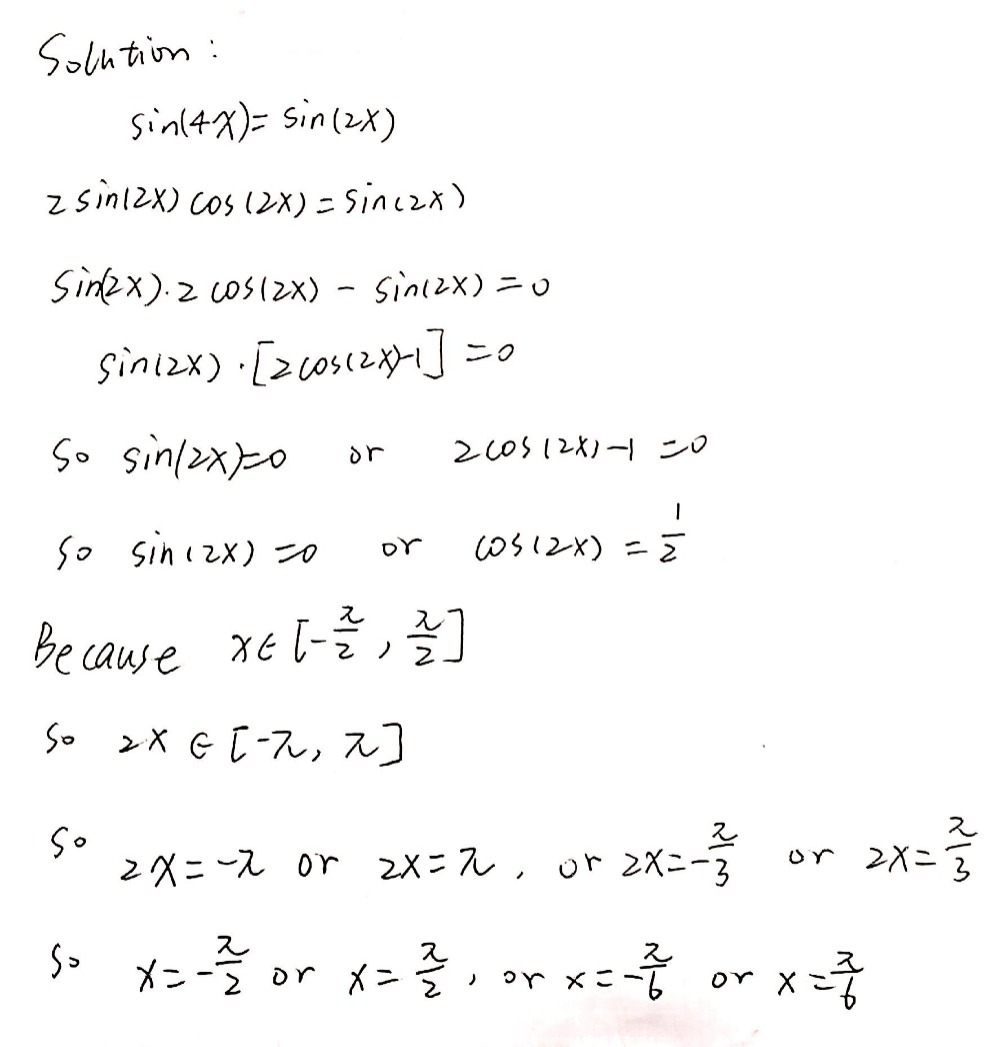 Solution:
sin(4x)= sin(2x)
2 sin(2x) cos(2x) = sin(2x)
sin(2x)·2 cos(2x) - sin(2x) = 0
sin(2x)·[2cos(2x)-1] = 0
So sin(2x)=0 or 2cos(2x)-1 = 0
So sin(2x) = 0 or cos(2x) = 1/2
Because x∈[-π/2, π/2]
So 2x∈[-π, π]
So 2x=-π or 2x=π, or 2x=-π/3 or 2x=π/3
So x=-π/2 or x=π/2, or x=-π/6 or x=π/6